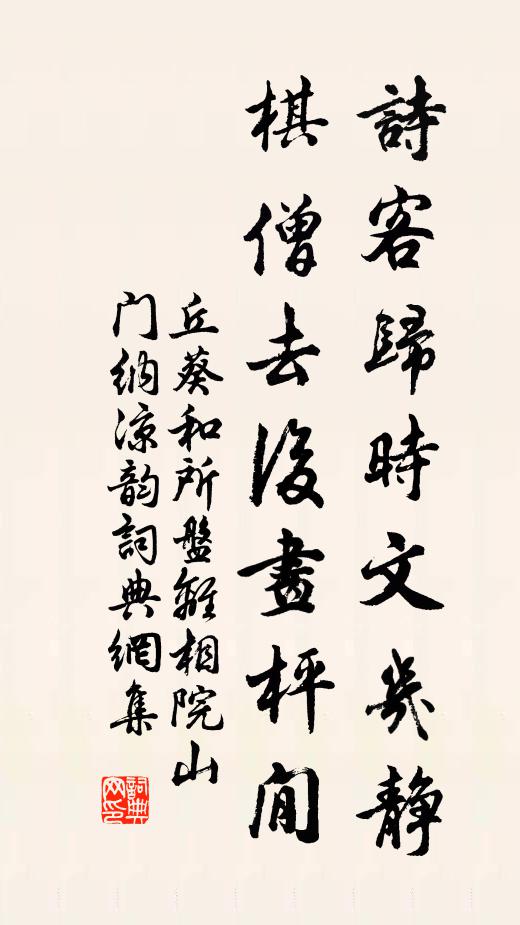 詩客歸時文幾靜
棋僧去後畫枰閒
丘葵和所盤雜相院山
门纳凉韵詞典網集
詞典
网印